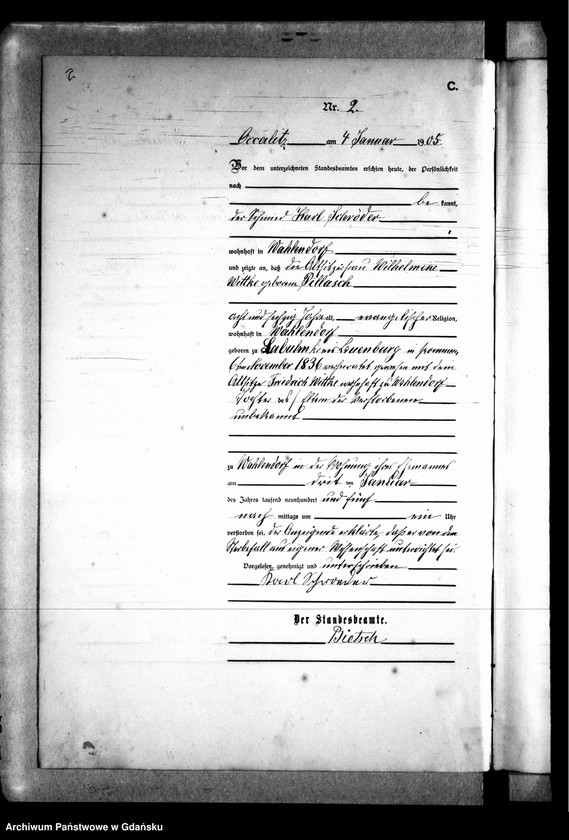 2
C.
Nr. 2.
Occalitz am 4 Januar 1905.
Vor dem unterzeichneten Standesbeamten erschien heute, der Persönlichkeit
nach
be kannt,
der Schmied Karl Schröder
,
wohnhaft in Wahlendorf
und zeigte an, daß die Altsitzerfrau Wilhelmine
Wittke geborene Pillasch
acht und sechzig Jahre alt, evangelischer Religion,
wohnhaft in Wahlendorf
geboren zu Labuhn Kreis Lauenburg in Pommern,
6ten November 1836 verheiratet gewesen mit dem
Altsitzer Friedrich Wittke wohnhaft zu Wahlendorf
Tochter des / Eltern der Verstorbenen
unbekannt
zu Wahlendorf in der Wohnung ihres Ehemannes
am drit ten Januar
des Jahres tausend neunhundert und fünf
nach mittags um ein Uhr
verstorben sei. der Anzeigende erklärte, daß er von dem
Sterbefall aus eigener Wissenschaft unterrichtet sei.
Vorgelesen, genehmigt und unterschrieben
Karl Schroeder
Der Standesbeamte.
Bietsch
Archiwum Państwowe w Gdańsku